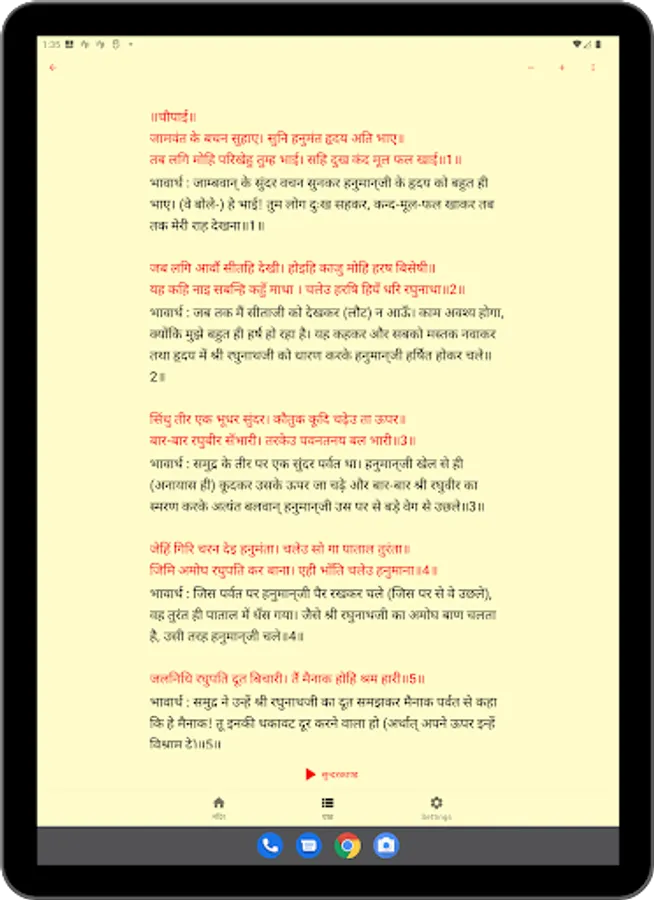 1:35
॥चौपाई॥
जामवंत के बचन सुहाए। सुनि हनुमंत हृदय अति भाए॥
तब लगि मोहि परिखेहु तुम्ह भाई। सहि दुख कंद मूल फल खाई॥1॥
भावार्थ : जाम्बवान् के सुंदर वचन सुनकर हनुमान्‌जी के हृदय को बहुत ही
भाए। (वे बोले-) हे भाई! तुम लोग दुःख सहकर, कन्द-मूल-फल खाकर तब
तक मेरी राह देखना॥1॥
जब लगि आवौं सीतहि देखी। होइहि काजु मोहि हरष बिसेषी॥
यह कहि नाइ सबन्हि कहुँ माथा । चलेउ हरषि हियँ धरि रघुनाथा॥2॥
भावार्थ : जब तक मैं सीताजी को देखकर (लौट) न आऊँ। काम अवश्य होगा,
क्योंकि मुझे बहुत ही हर्ष हो रहा है। यह कहकर और सबको मस्तक नवाकर
तथा हृदय में श्री रघुनाथजी को धारण करके हनुमान्‌जी हर्षित होकर चले॥
2॥
सिंधु तीर एक भूधर सुंदर। कौतुक कूदि चढ़ेउ ता ऊपर॥
बार-बार रघुबीर सँभारी। तरकेउ पवनतनय बल भारी॥3॥
भावार्थ : समुद्र के तीर पर एक सुंदर पर्वत था। हनुमान्‌जी खेल से ही
(अनायास ही) कूदकर उसके ऊपर जा चढ़े और बार-बार श्री रघुवीर का
स्मरण करके अत्यंत बलवान् हनुमान्‌जी उस पर से बड़े वेग से उछले॥3॥
जेहिं गिरि चरन देइ हनुमंता। चलेउ सो गा पाताल तुरंता॥
जिमि अमोघ रघुपति कर बाना। एही भाँति चलेउ हनुमाना॥4॥
भावार्थ : जिस पर्वत पर हनुमान्‌जी पैर रखकर चले (जिस पर से वे उछले),
वह तुरंत ही पाताल में धँस गया। जैसे श्री रघुनाथजी का अमोघ बाण चलता
है, उसी तरह हनुमान्‌जी चले॥4॥
जलनिधि रघुपति दूत बिचारी। तैं मैनाक होहि श्रम हारी॥5॥
भावार्थ : समुद्र ने उन्हें श्री रघुनाथजी का दूत समझकर मैनाक पर्वत से कहा
कि हे मैनाक! तू इनकी थकावट दूर करने वाला हो (अर्थात् अपने ऊपर इन्हें
विश्राम दे)॥5॥
सुन्दरकाण्ड
Settings